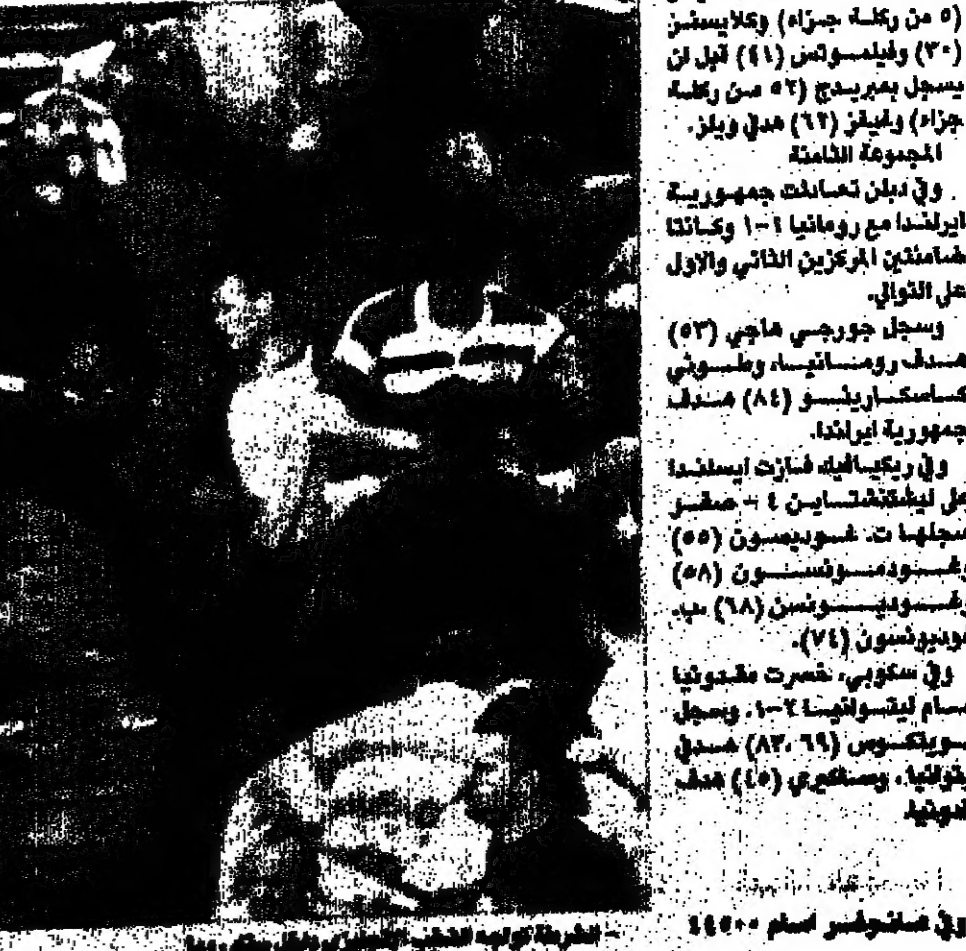 (٥ من ركلة جزاء) وكلايستن
(٣٠) وفيلموتس (٤١) قبل ان
يسجل بمبريدج (٥٢ من ركلة
جزاء) وغيغز (٦٢) هدفي ويلز.
المجموعة الثامنة
وفي دبلن تعادلت جمهورية
ايرلندا مع رومانيا ١-١ وكانتا
ضامنتين المركزين الثاني والاول
على التوالي.
وسجل جورجي هاجي (٥٣)
هدف رومانيا، وطوني
كاسكارينو (٨٤) هدف
جمهورية ايرلندا.
وفي ريكيافيك فازت ايسلندا
على ليشتنشتاين ٤ - صفر
سجلها ت. غوديسون (٥٥)
وغودموندسون (٥٨)
(٦٨)
(٧٤).
وفي سكوبي، خسرت مقدونيا
امام ليتوانيا ٢-١. وسجل
(٦٩، ٨٣) هدفي
ليتوانيا، (٤٥) هدف
وفي امام ٤٤٥٠٠
- الشرطة تواجه الشغب